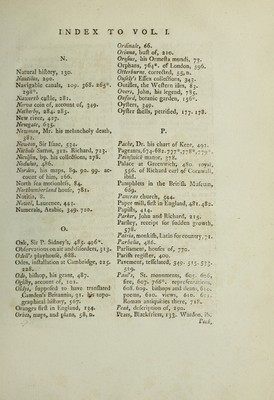 INDEX TO VOL. I.
N.
Natural history, 130.
Nautilus, 290.
Navigable canals, 109. 368. 263*.
298*.
Naworth castle, 281.
Nerva coin of, account of, 349.
Netherby, 284. 285.
New river, 427.
Newgate, 635.
Newman, Mr. his melancholy death,
382.
Newton, Sir Isaac, 524.
Nichols Sutton, 512. Richard, 713.
Nicolson, bp. his collections, 278.
Nidulus, 486.
Norden, his maps, 89. 90. 99. ac-
count of him, 260.
North sea meionable, 84.
Northumberland house, 781.
Notitia, 8.
Nowel, Laurence, 443.
Numerals, Arabic, 349. 710.
O.
Oak, Sir P. Sidney's, 485. 496*.
Observations on air and fissures, 313.
Odell's playhouse, 688.
Odes, installation at Cambridge, 225.
228.
Odo, bishop, his grant, 487.
Ogilby, account of, 101.
Oldys, supposed to have translated
Camden's Britannia, 31. his topo-
graphical history, 567.
Oranges first in England, 134.
Orbis, maps, and plans, 58, n.
Ordinale, 66.
Oriuna, bust of, 210.
Orosius, his Ormesta mundi, 77.
Orphans, 764*. of London, 596.
Otterburne, corrected, 55, n.
Ouseley's Essex collections, 343.
Outisles, the Western isles, 83.
Owen, John, his legend, 785.
Oxford, botanic garden, 136*.
Oysters, 349.
Oyster shells, petrified, 177. 178.
P.
Packe, Dr. his chart of Kent, 491.
Pageants, 674-682. 777*. 778*. 779*.
Painswick manor, 378.
Palace at Greenwich, 480. royal,
556. of Richard earl of Cornwall,
ibid.
Pamphlets in the British Museum,
669.
Pancras church, 544.
Paper mill, first in England, 481. 482.
Papists, 414.
Parker, John and Richard, 215.
Parsley, receipt for sudden growth,
578.
Patria, monkish, Latin for country, 71.
Parhelia, 486.
Parliament, houses of, 770.
Parish register, 400.
Pavement, tesselated, 349. 515. 523.
519.
Paul's, St. monuments, 605. 606,
fire, 607. 766*. representations,
608. 609. bishops and deans, 610.
poems, 610. views, 610. 611.
Roman antiquities there, 718.
Peak, description of, 290.
Pears, Blackfriess, 133. Warden, ib.
Peck,